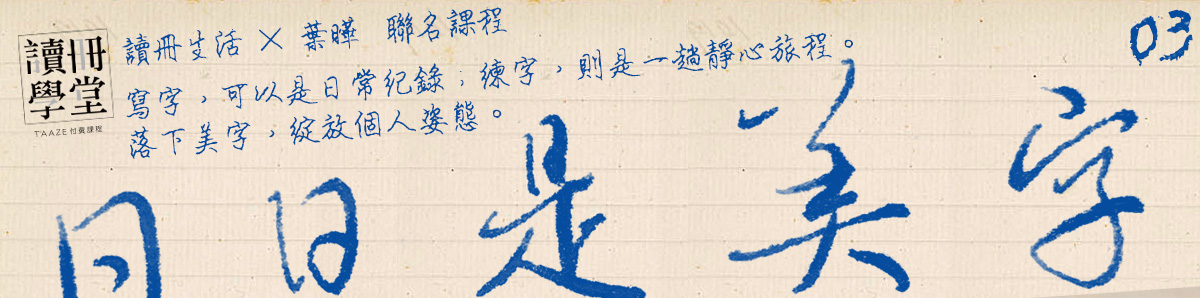 讀冊學堂
TAAZE 付費課程
讀冊生活 × 葉曄 聯名課程
寫字，可以是日常紀錄；練字，則是一趟靜心旅程。
落下美字，綻放個人姿態。
03
日日是美字